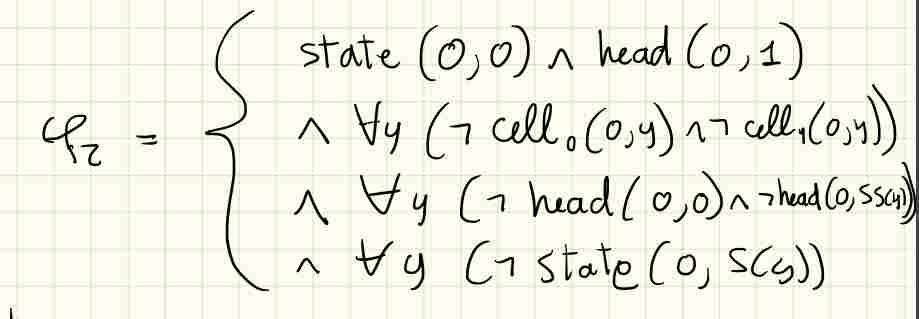 φ₂ = { state (0,0) ∧ head (0,1)
∧ ∀y (¬ cell₀(0,y) ∧ ¬ cell₁(0,y))
∧ ∀y (¬ head(0,0) ∧ ¬head(0,SS(y))
∧ ∀y (¬ state(0, S(y))